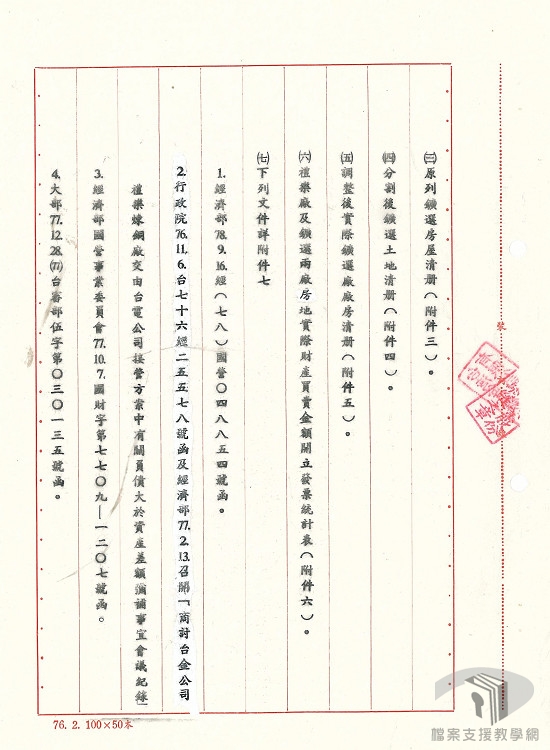 ㈢原列鑛選房屋清册(附件三)。
㈣分割後鑛選土地清册(附件四)。
㈤調整後實際鑛選廠廠房清册(附件五)。
㈥禮樂廠及鑛選兩廠房地實際財產買賣金額開立發票統計表(附件六)。
㈦下列文件詳附件七
1.經濟部78.9.16.經(七八)國營〇四八八五四號函。
2.行政院76.11.6.台七十六經二五五七八號函及經濟部77.2.13.召開「商討台金公司
禮樂煉銅廠交由台電公司接管方案中有關負債大於資產差額彌補事宜會議紀錄」
3.經濟部國營事業委員會77.10.7.國財字第七七〇九—一二〇七號函。
4.大部77.12.28.(77)台審部伍字第〇三〇一三五號函。
裝
76. 2. 100×50本
檔案支援教學網